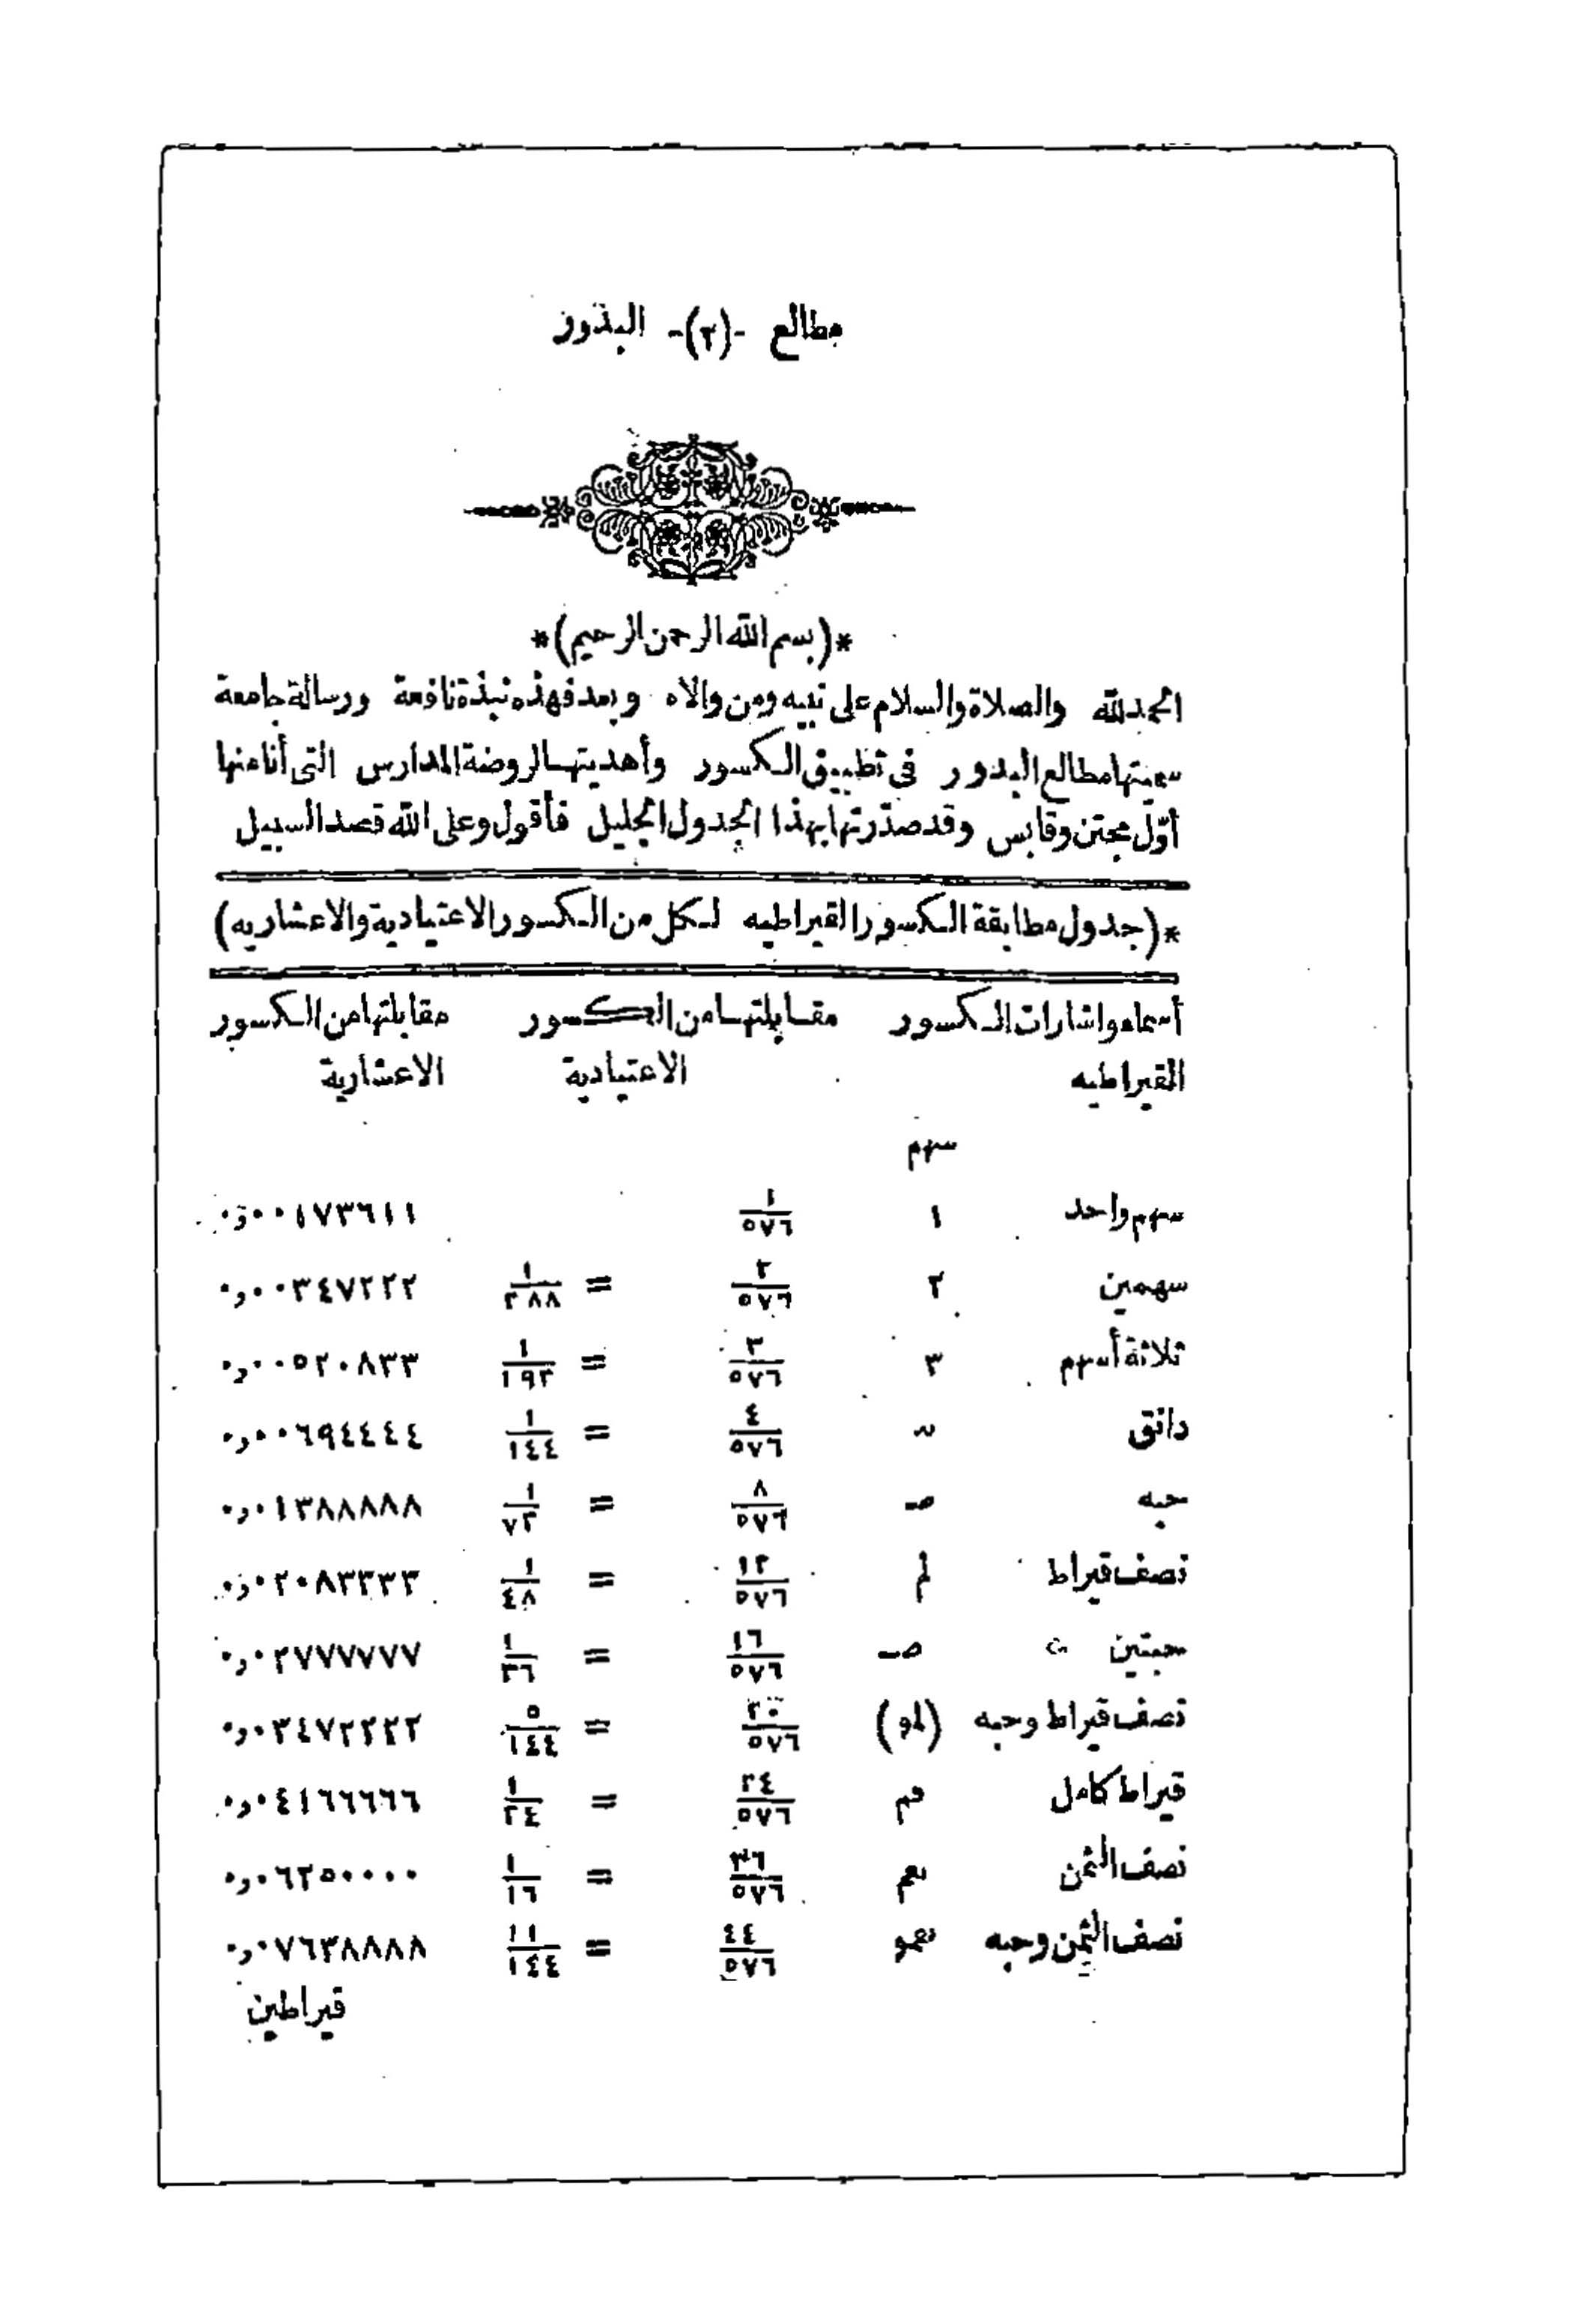 مطالع -(٢)- البدور
*(بسم الله الرحمن الرحيم)*
الحمد لله والصلاة والسلام على نبيه ومن والاه وبعد فهذه نبذة نافعة ورسالة جامعة
سميتها مطالع البدور فى تطبيق الكسور وأهديتها لروضة المدارس التى أنا منها
أوّل مجتن وقابس وقد صدّرتها بهذا الجدول الجليل فأقول وعلى الله قصد السبيل
*(جدول مطابقة الكسور القيراطيه لكل من الكسور الاعتيادية والاعشاريه)
أسماء واشارات الكسور القيراطيه مقابلتها من الكسور الاعتيادية مقابلتها من الكسور الاعشارية
سهم
سهم واحد ١ ١/٥٧٦ ٠٠١٧٣٦١١و٠
سهمين ٢ ٢/٥٧٦ = ١/٢٨٨ ٠٠٣٤٧٢٢٢و٠
ثلاثة أسهم ٣ ٣/٥٧٦ = ١/١٩٢ ٠٠٥٢٠٨٣٣و٠
دانق ٤/٥٧٦ = ١/١٤٤ ٠٠٦٩٤٤٤٤و٠
حبه ٨/٥٧٦ = ١/٧٢ ٠١٣٨٨٨٨٨و٠
نصف قيراط ١٢/٥٧٦ = ١/٤٨ ٠٢٠٨٣٣٣٣و٠
حبتين ١٦/٥٧٦ = ١/٣٦ ٠٢٧٧٧٧٧٧و٠
نصف قيراط وحبه ٢٠/٥٧٦ = ٥/١٤٤ ٠٣٤٧٢٢٢٢و٠
قيراط كامل ٢٤/٥٧٦ = ١/٢٤ ٠٤١٦٦٦٦٦و٠
نصف الثمن ٣٦/٥٧٦ = ١/١٦ ٠٦٢٥٠٠٠٠و٠
نصف الثمن وحبه ٤٤/٥٧٦ = ١١/١٤٤ ٠٧٦٣٨٨٨٨و٠
قيراطين